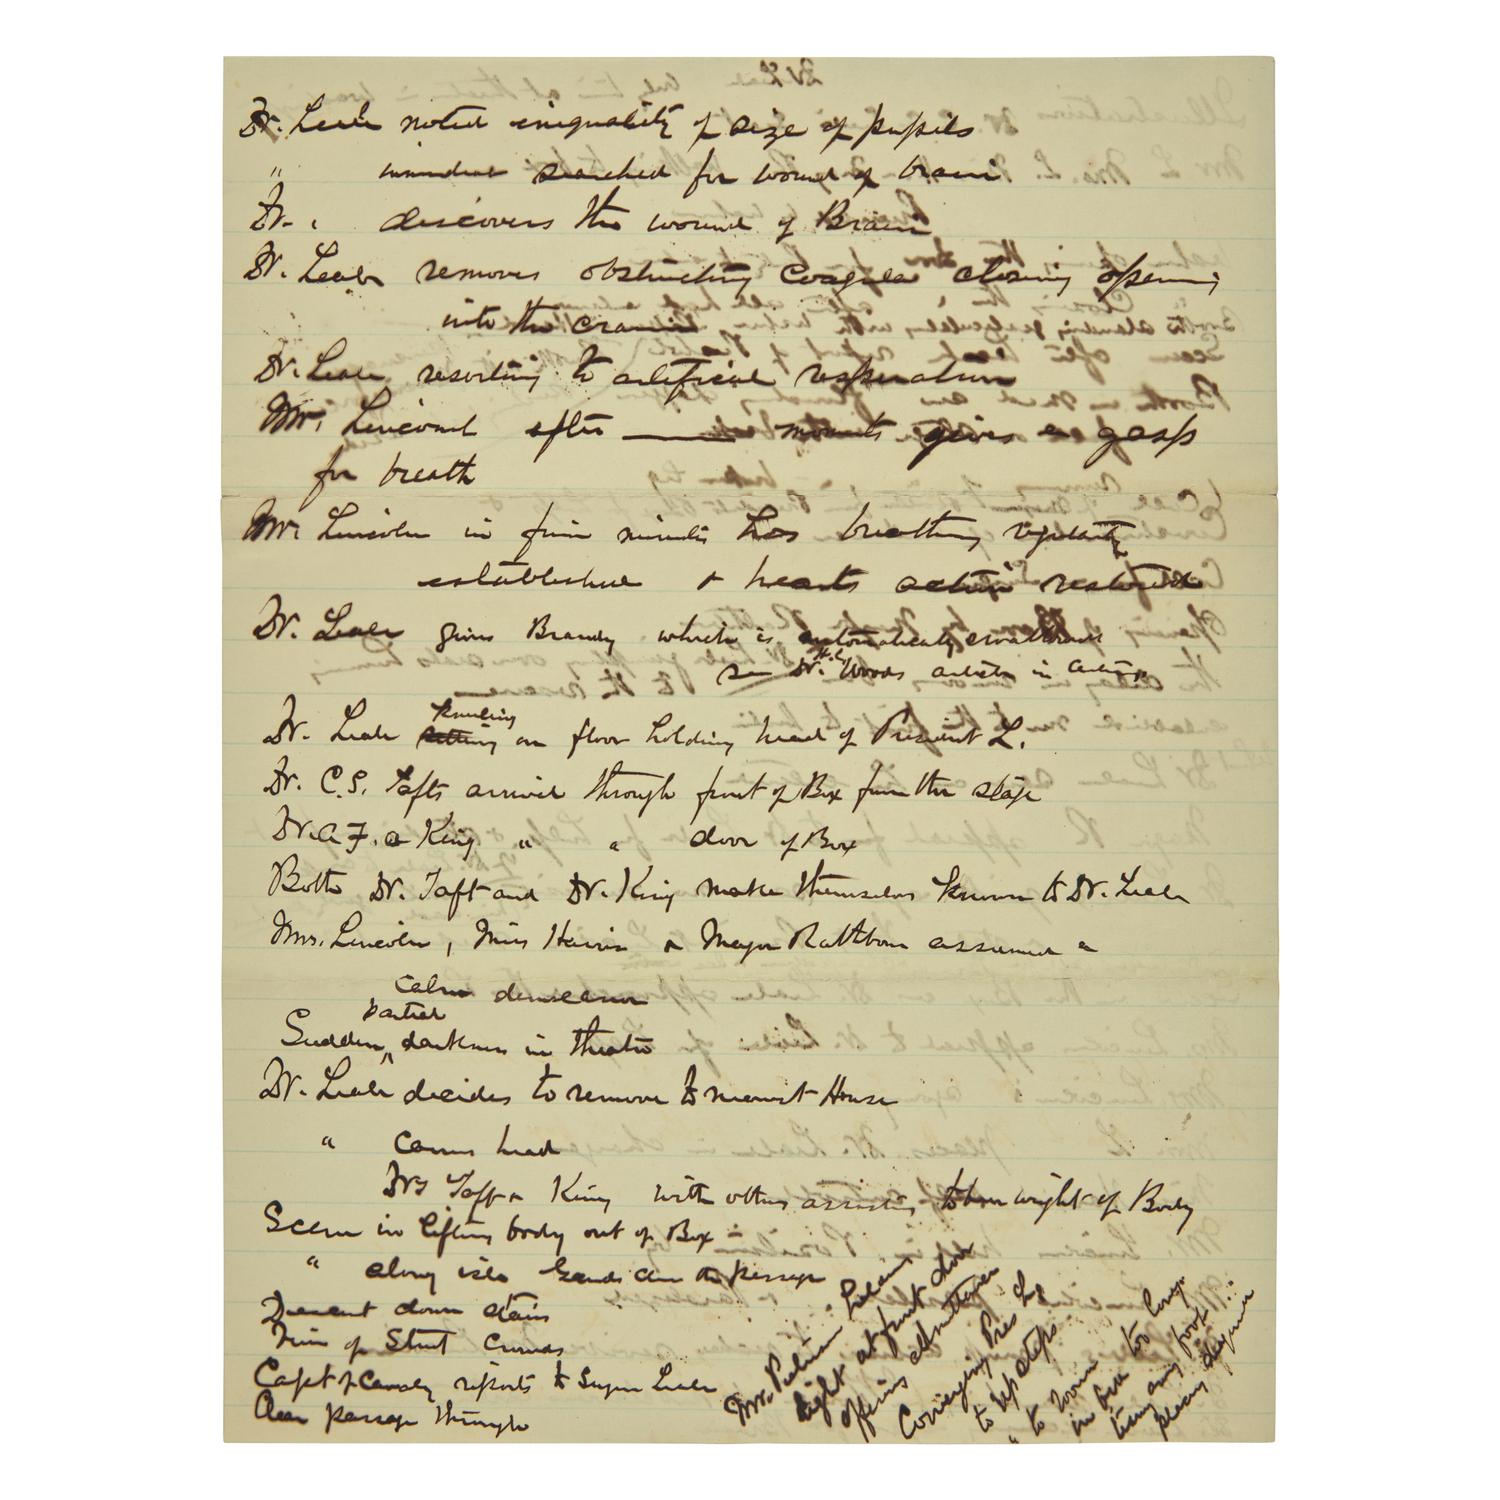 Dr. Leale noted inequality of size of pupils
" searched for wound of brain
Dr. " discovers the wound of Brain
Dr. Leale removes obstructing coagula closing opening
into the cranium
Dr. Leale resorting to artificial respiration
Mr. Lincoln after ____ moments gives a gasp
for breath
Mr. Lincoln in few minutes has breathing regularity
established & hearts action restored
Dr. Leale gives Brandy which is automatically swallowed
see Dr. Woods article in
kneeling
Dr. Leale sitting on floor holding head of President L.
Dr. C.S. Tafts arrived through front of Box from the stage
Dr. A F. A King " " door of Box
Both Dr. Taft and Dr. King make themselves known to Dr. Leale
Mrs. Lincoln, Miss Harris & Major Rathbone assumed a
calm demeanor
partial
Sudden ^ darkness in theatre
Dr. Leale decides to remove to nearest House
" carries head
Drs Taft & King with others assisting to bear weight of Body
Scene in lifting body out of Box
" along isle the passage
Descent down stairs
View of Street Crowds
Capt of Cavalry reports to Surgeon Leale
Clear passage through
Mr. Petersen
light at front door
offering admittance
Conveying Pres
to up steps
" to room
in bed too long